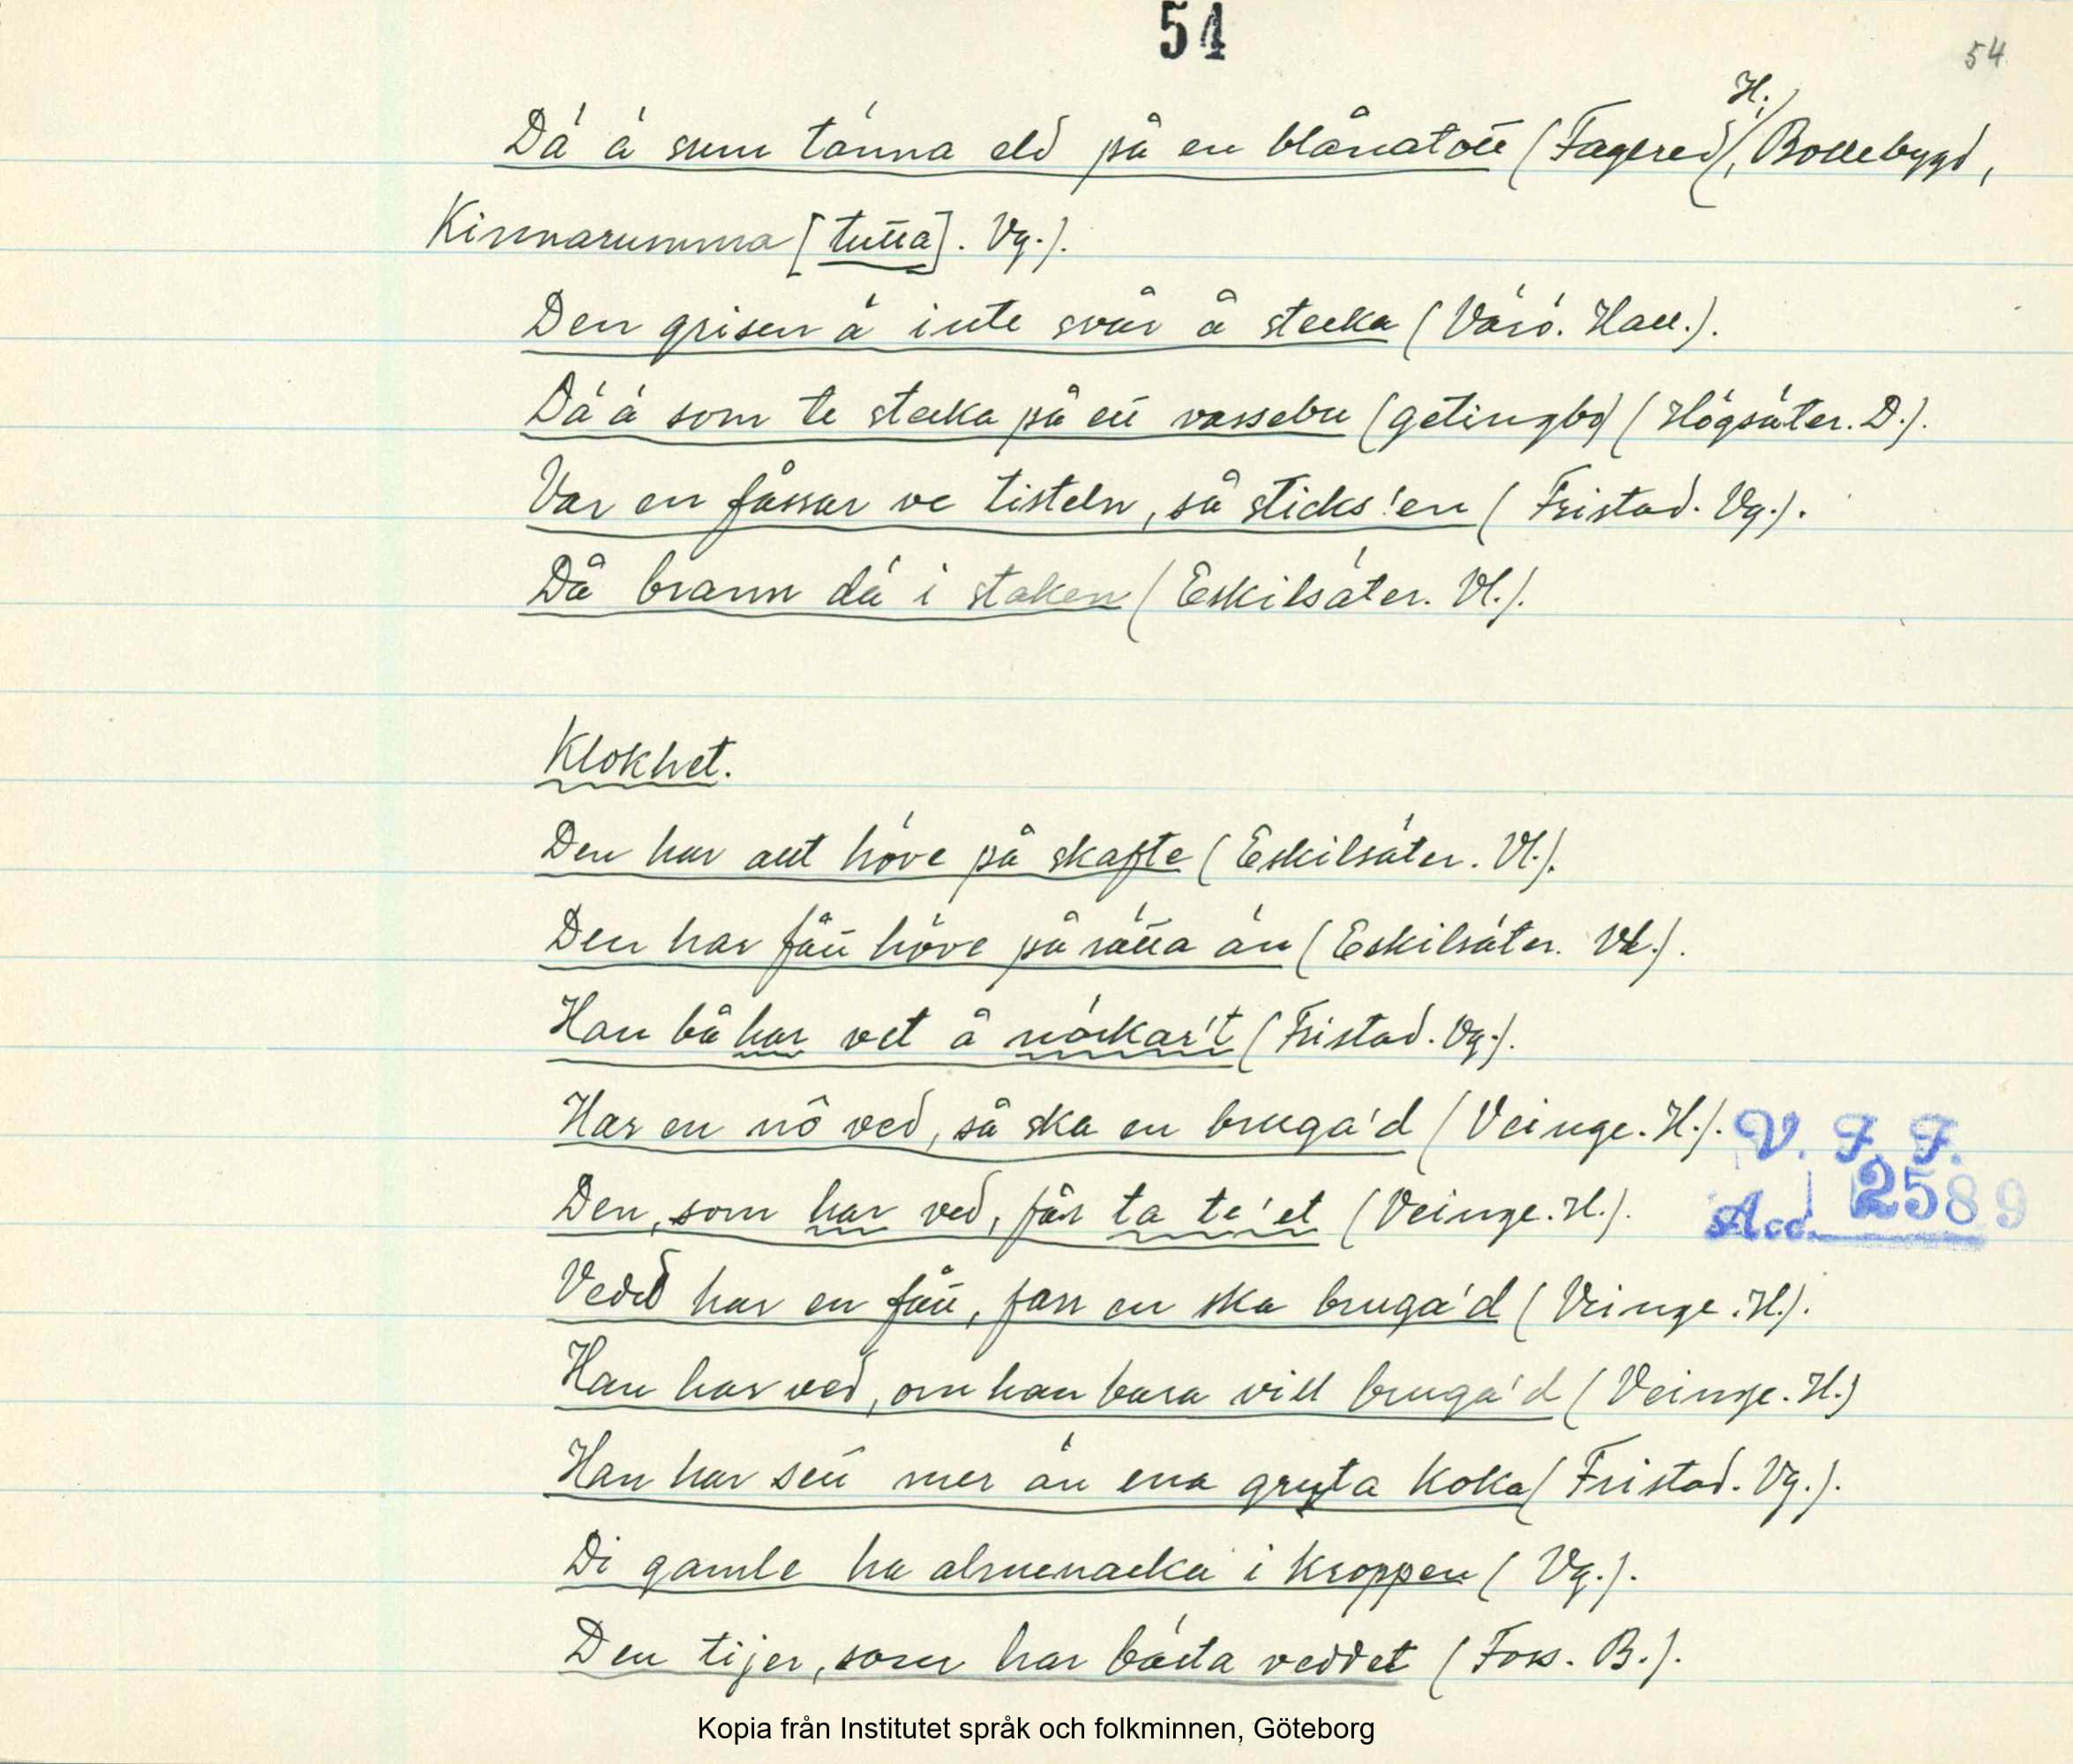 54
54
Dä ä sum tänna eld på en blånatott (Fagered, H.; Bollebygd,
Kinnarumma [tutta]. Vg.).
Den grisen ä inte svår å stecka (Värö. Hall.).
Dä ä som te stecka på ett vassebu (getingbo) (Högsäter. D.).
Var en fåssar ve tisteln, så sticks'en (Fristad. Vg.).
Då brann dä i staken (Eskilsäter. Vl.).
Klokhet.
Den har allt höve på skafte (Eskilsäter. Vl.).
Den har fått höve på rätta än (Eskilsäter. Vl.).
Han bå har vet å nöckar't (Fristad. Vg.).
Har en nô ved, så ska en bruga'd (Veinge. H.).
V. F. F.
Den, som har ved, får ta te'et (Veinge. H.).
Acc. 2589
Vedd har en fått, farr en ska bruga'd (Veinge. H.).
Han har ved, om han bara vill bruga'd (Veinge. H.)
Han har sett mer än ena gryta koka (Fristad. Vg.).
Di gamle ha almenacka i kroppen (Vg.).
Den tijer, som har bästa veddet (Foss. B.).
Kopia från Institutet språk och folkminnen, Göteborg